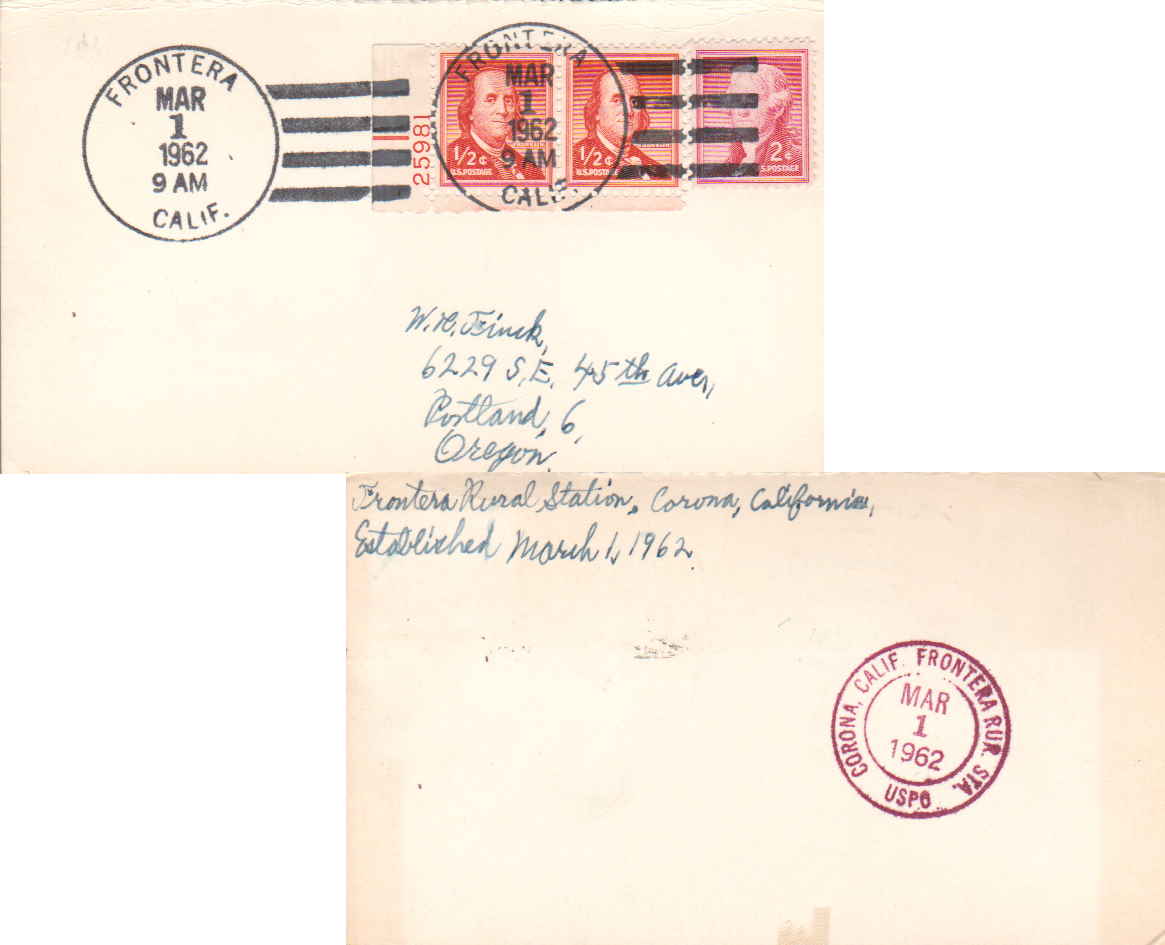 FRONTERA
MAR
1
1962
9 AM
CALIF.
25981
FRONTERA
MAR
1
1962
9 AM
CALIF.
1/2¢
U.S.POSTAGE
1/2¢
U.S.POSTAGE
2¢
U.S.POSTAGE
W.H. Finck,
6229 S.E. 45th Ave.,
Portland, 6,
Oregon,
Frontera Rural Station, Corona, California,
Established March 1, 1962.
CORONA, CALIF. FRONTERA RUR. STA.
MAR
1
1962
USPO